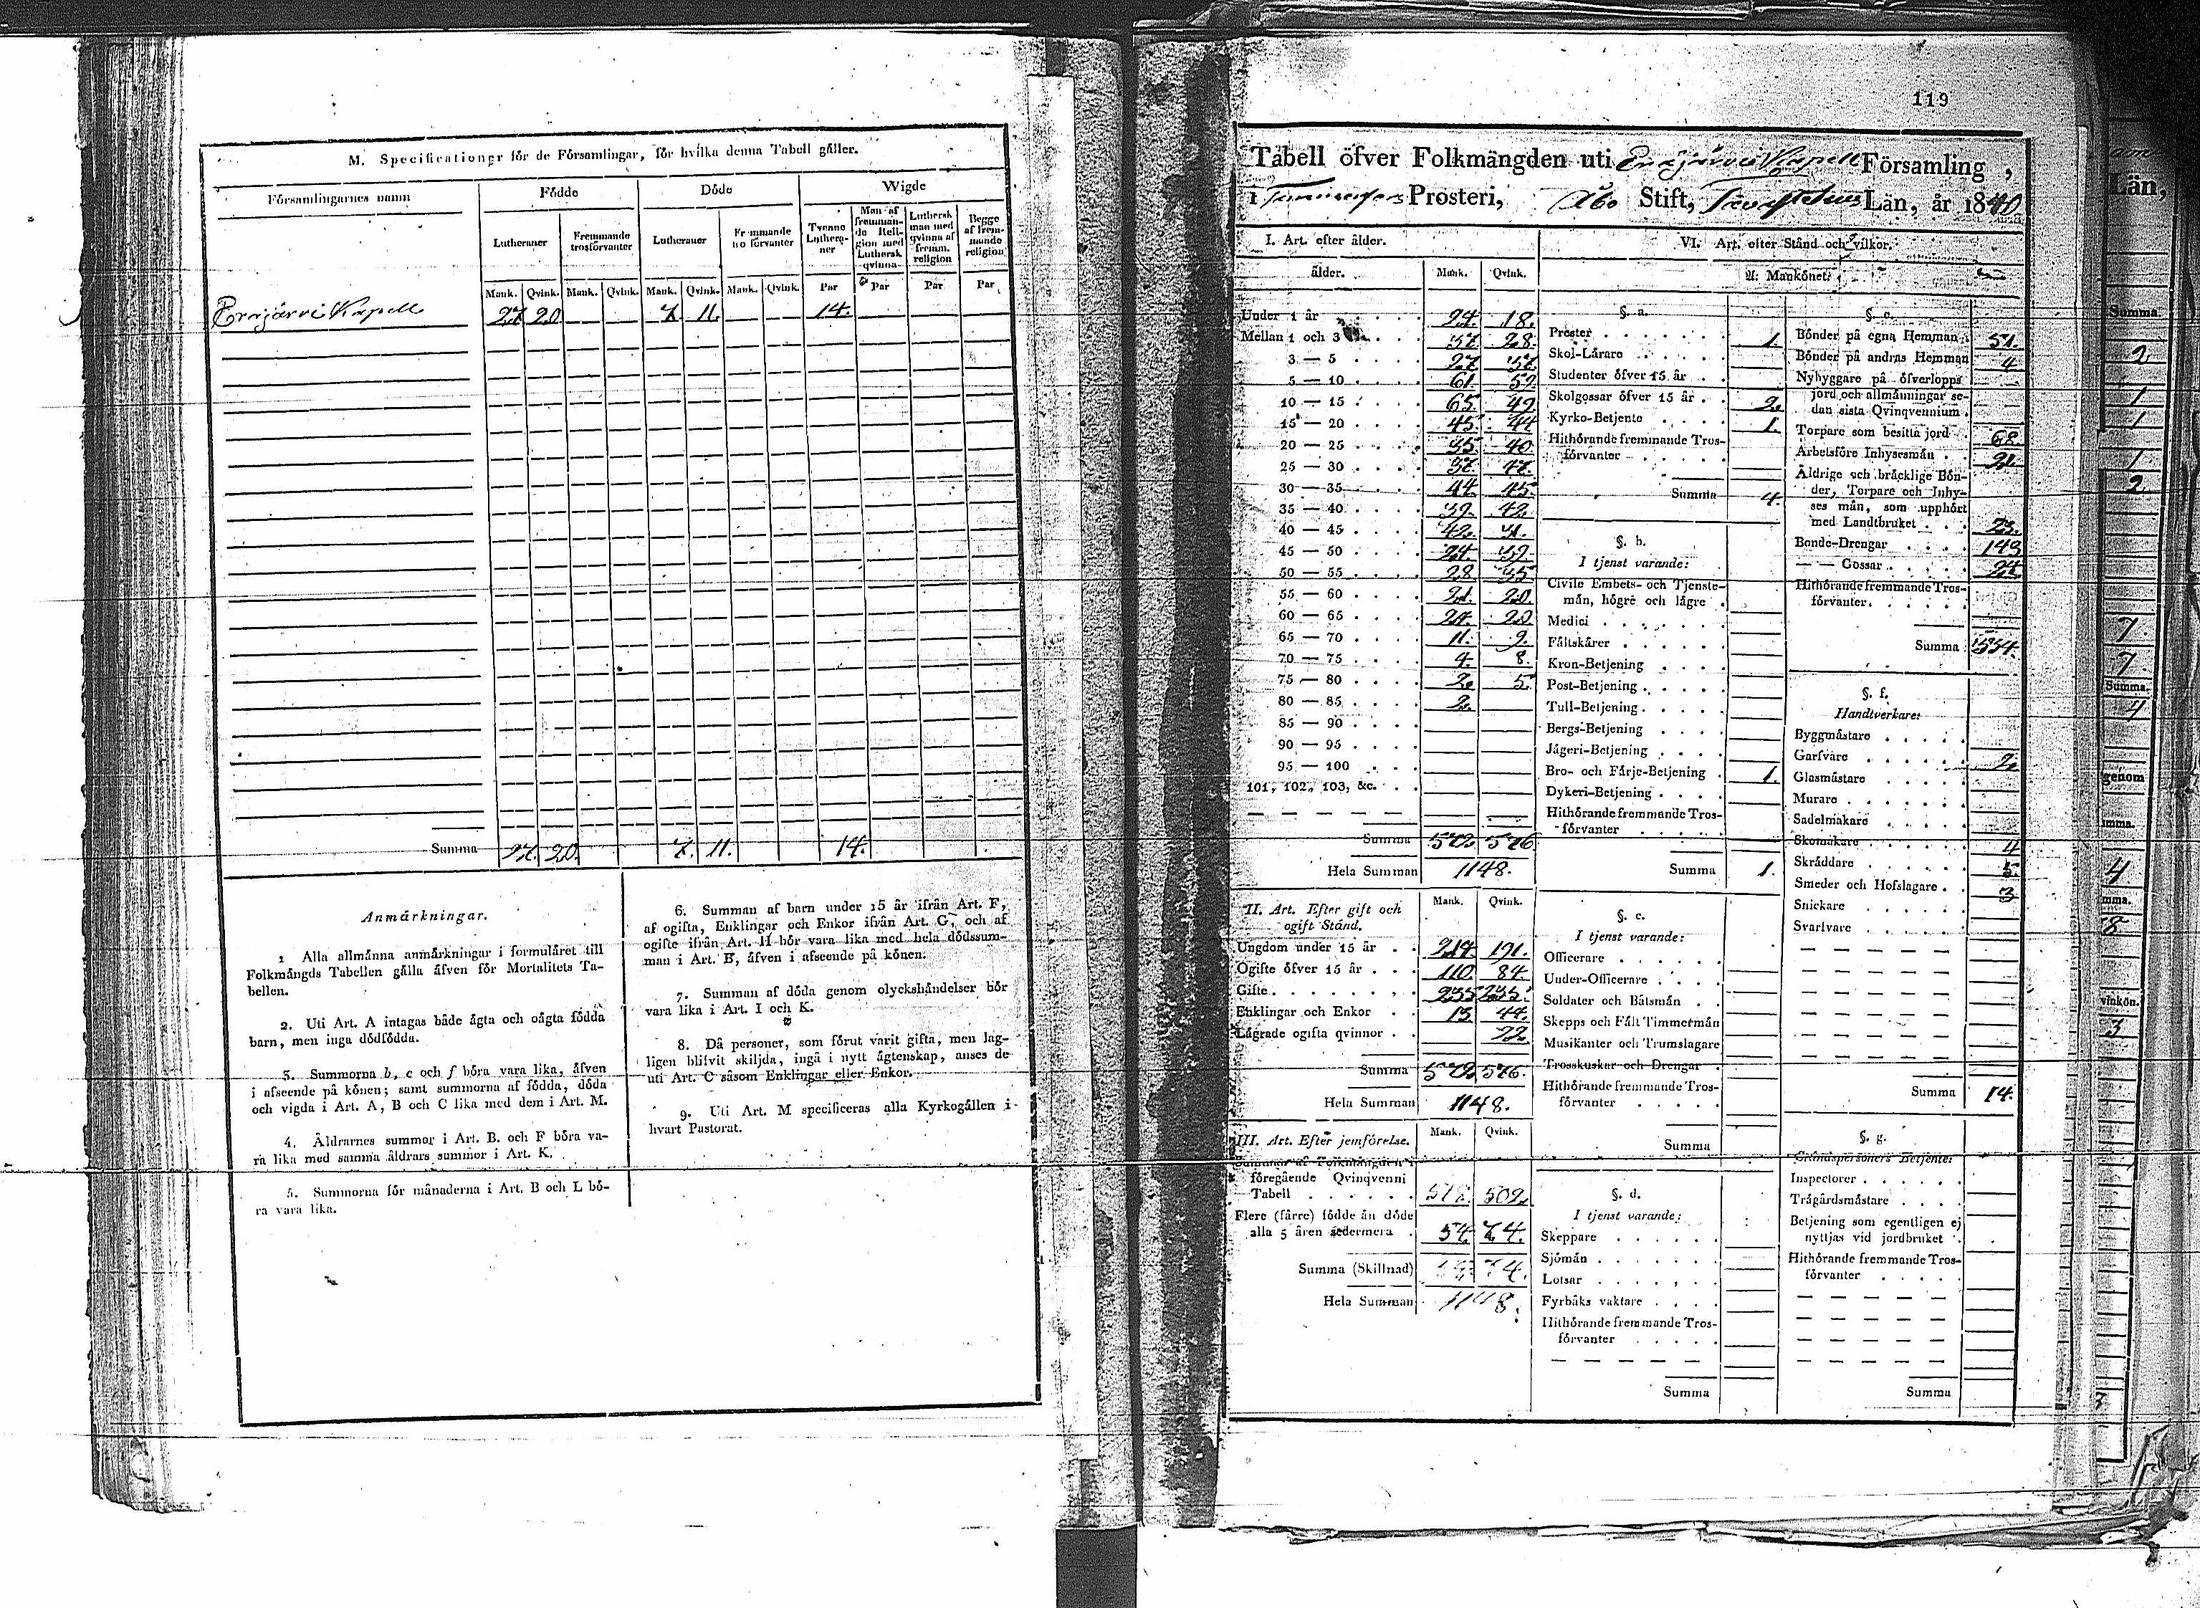 M. Specificationer för de Församlingar, för hvilka denna Tabell gäller.
Församlingarnes namn
Födde
Döde
Wigde
Lutheraner
Fremmande trosförvanter
Lutheraner
Fremmande trosförvanter
Tvenne Lutheraner
Man af fremmande Religion med Luthersk qvinna
Luthersk man med qvinna af fremm. religion
Begge af fremmande religion
Mank. Qvink. Mank. Qvink. Mank. Qvink. Mank. Qvink. Par Par Par Par
Eräjärvi Kapell 27 20 7 11. 14.
Summa 27. 20. 7. 11. 14.
Anmärkningar.
1 Alla allmänna anmärkningar i formuläret till
Folkmängds Tabellen gälla äfven för Mortalitets Ta-
bellen.
2. Uti Art. A intagas både ägta och oägta födda
barn, men inga dödfödda.
3. Summorna b, c och f böra vara lika, äfven
i afseende på könen; samt summorna af födda, döda
och vigda i Art. A, B och C lika med dem i Art. M.
4. Äldrarnes summor i Art. B. och F böra va-
ra lika med samma åldrars summor i Art. K.
5. Summorna för månaderna i Art. B och L bö-
ra vara lika.
6. Summan af barn under 15 år ifrån Art. F,
af ogifta, Enklingar och Enkor ifrån Art. G, och af
ogifte ifrån Art. H bör vara lika med hela dödssum-
man i Art. B, äfven i afseende på könen.
7. Summan af döda genom olyckshändelser bör
vara lika i Art. I och K.
8. Då personer, som förut varit gifta, men lag-
ligen blifvit skiljda, ingå i nytt ägtenskap, anses de
uti Art. C såsom Enklingar eller Enkor.
9. Uti Art. M specificeras alla Kyrkogällen i
hvart Pastorat.
119
Tabell öfver Folkmängden uti Eräjärvi Kapell Församling,
i Tammerfors Prosteri, Åbo Stift, Tavastehus Län, år 1840
I. Art. efter ålder.
ålder. Mank. Qvink.
Under 1 år 24. 18.
Mellan 1 och 3 37. 28.
3 — 5 27. 37.
5 — 10 61. 59.
10 — 15 65. 49.
15 — 20 45. 44.
20 — 25 35. 40.
25 — 30 37. 47.
30 — 35 44. 45.
35 — 40 39. 42.
40 — 45 42. 31.
45 — 50 24. 39.
50 — 55 28. 35.
55 — 60 21. 20.
60 — 65 24. 20
65 — 70 11. 9.
70 — 75 4. 8.
75 — 80 2. 5.
80 — 85 2.
85 — 90
90 — 95
95 — 100
101, 102, 103, &c.
Summa 572. 576
Hela Summan 1148.
II. Art. Efter gift och ogift Stånd. Mank. Qvink.
Ungdom under 15 år 214. 191.
Ogifte öfver 15 år 110. 84.
Gifte 235 235.
Enklingar och Enkor 13. 44.
Lägrade ogifta qvinnor 22.
Summa 572. 576.
Hela Summan 1148.
III. Art. Efter jemförelse. Mank. Qvink.
Summan af Folkmängden i
föregående Qvinqvenni
Tabell 518. 502.
Flere (färre) födde än döde
alla 5 åren sedermera 54. 74.
Summa (Skillnad) 74.
Hela Summan 1148.
VI. Art. efter Stånd och vilkor.
A: Mankönet:
§. a.
Prester 1.
Skol-Lärare
Studenter öfver 15 år
Skolgossar öfver 15 år 2.
Kyrko-Betjente 1.
Hithörande fremmande Tros-
förvanter
Summa 4.
§. b.
I tjenst varande:
Civile Embets- och Tjenste-
män, högre och lägre
Medici
Fältskärer
Kron-Betjening
Post-Betjening
Tull-Betjening
Bergs-Betjening
Jägeri-Betjening
Bro- och Färje-Betjening 1.
Dykeri-Betjening
Hithörande fremmande Tros-
förvanter
Summa 1.
§. c.
I tjenst varande:
Officerare
Under-Officerare
Soldater och Båtsmän
Skepps och Fält Timmermän
Musikanter och Trumslagare
Trosskuskar och Drengar
Hithörande fremmande Tros-
förvanter
Summa
§. d.
I tjenst varande:
Skeppare
Sjömän
Lotsar
Fyrbåks vaktare
Hithörande fremmande Tros-
förvanter
Summa
§. e.
Bönder på egna Hemman 57.
Bönder på andras Hemman 4
Nybyggare på öfverlopps
jord och allmänningar se-
dan sista Qvinqvennium.
Torpare som besitta jord 68.
Arbetsföre Inhysesmän 21.
Åldrige och bräcklige Bön-
der, Torpare och Inhy-
ses män, som upphört
med Landtbruket 23.
Bonde-Drengar 143
— — Gossar 24
Hithörande fremmande Tros-
förvanter.
Summa
§. f.
Handtverkare:
Byggmästare
Garfvare 2.
Glasmästare
Murare
Sadelmakare
Skomakare 4
Skräddare 5.
Smeder och Hofslagare 3
Snickare
Svarfvare
Summa 14.
§. g.
Ståndspersoners Betjente:
Inspectorer
Trägårdsmästare
Betjening som egentligen ej
nyttjas vid jordbruket
Hithörande fremmande Tros-
förvanter
Summa
Län,
Summa.
2
1
1
1
2
7
7
Summa.
4
genom
mma.
4
mma.
8
vinkön.
3